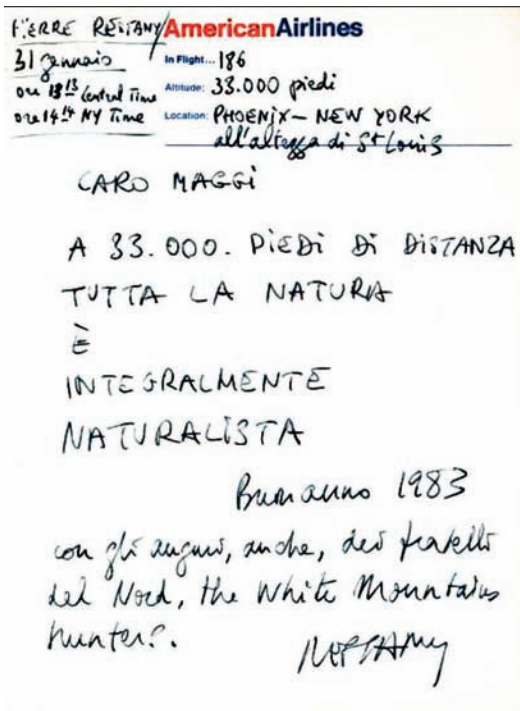 PIERRE RESTANY/AmericanAirlines
31 gennaio
ore 13 15 Central Time
ore 14 14 NY Time
In Flight... 186
Altitude: 33.000 piedi
Location: PHOENIX — NEW YORK
all'altezza di St Louis
CARO MAGGI
A 33.000. PIEDI DI DISTANZA
TUTTA LA NATURA
È
INTEGRALMENTE
NATURALISTA
Buon anno 1983
con gli auguri, anche, dei fratelli
del Nord, the White Mountains
hunters.
RESTANY